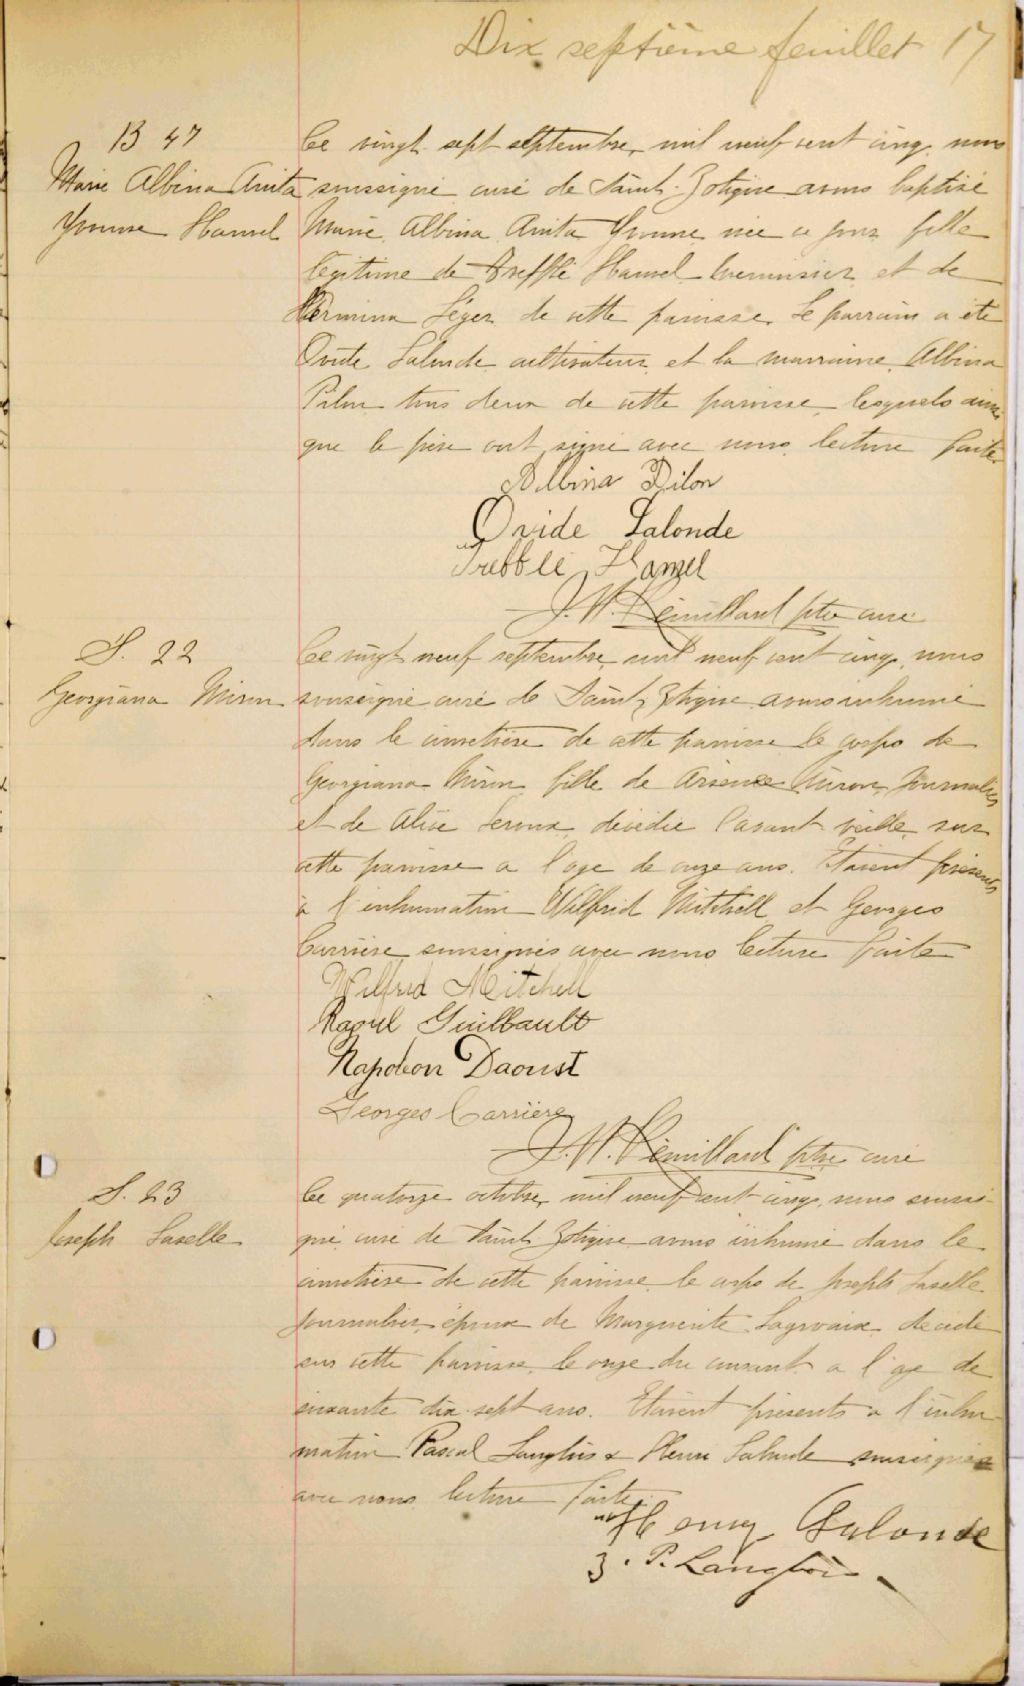 Dix septième feuillet 17
B 47
Marie Albina Anita
Yvonne Hamel
Ce vingt sept septembre, mil neuf cent cinq, nous
soussigné curé de Saint Zotique avons baptisé
Marie Albina Anita Yvonne née ce jour fille
légitime de Trefflé Hamel menuisier et de
Hermina Léger de cette paroisse. Le parrain a été
Ovide Lalonde cultivateur et la marraine Albina
Pilon tous deux de cette paroisse, lesquels ainsi
que le père ont signé avec nous, lecture faite.
Albina Pilon
Ovide Lalonde
Trefflé Hamel
J. W. Rémillard ptre curé
S. 22
Georgiana Miron
Ce vingt neuf septembre, mil neuf cent cinq, nous
soussigné curé de Saint Zotique avons inhumé
dans le cimetière de cette paroisse le corps de
Georgiana Miron fille de Arsène Miron, journalier
et de Alice Leroux, décédée l'avant veille, sur
cette paroisse a l'age de onze ans. Étaient présents
à l'inhumation Wilfrid Mitchell et Georges
Carrière soussignés avec nous lecture faite
Wilfrid Mitchell
Raoul Guilbault
Napoleon Daoust
Georges Carrière
J. W. Rémillard ptre curé
S. 23
Joseph Laselle
Ce quatorze octobre, mil neuf cent cinq, nous soussi-
gné, curé de Saint Zotique avons inhumé dans le
cimetière de cette paroisse le corps de Joseph Laselle
journalier, époux de Marguerite décédé
sur cette paroisse, le onze du courant a l'age de
soixante dix-sept ans. Étaient présents a l'inhu-
mation Pascal Langlois & Henri Lalonde soussignés
avec nous lecture faite.
Henry Lalonde
Z. P. Langlois